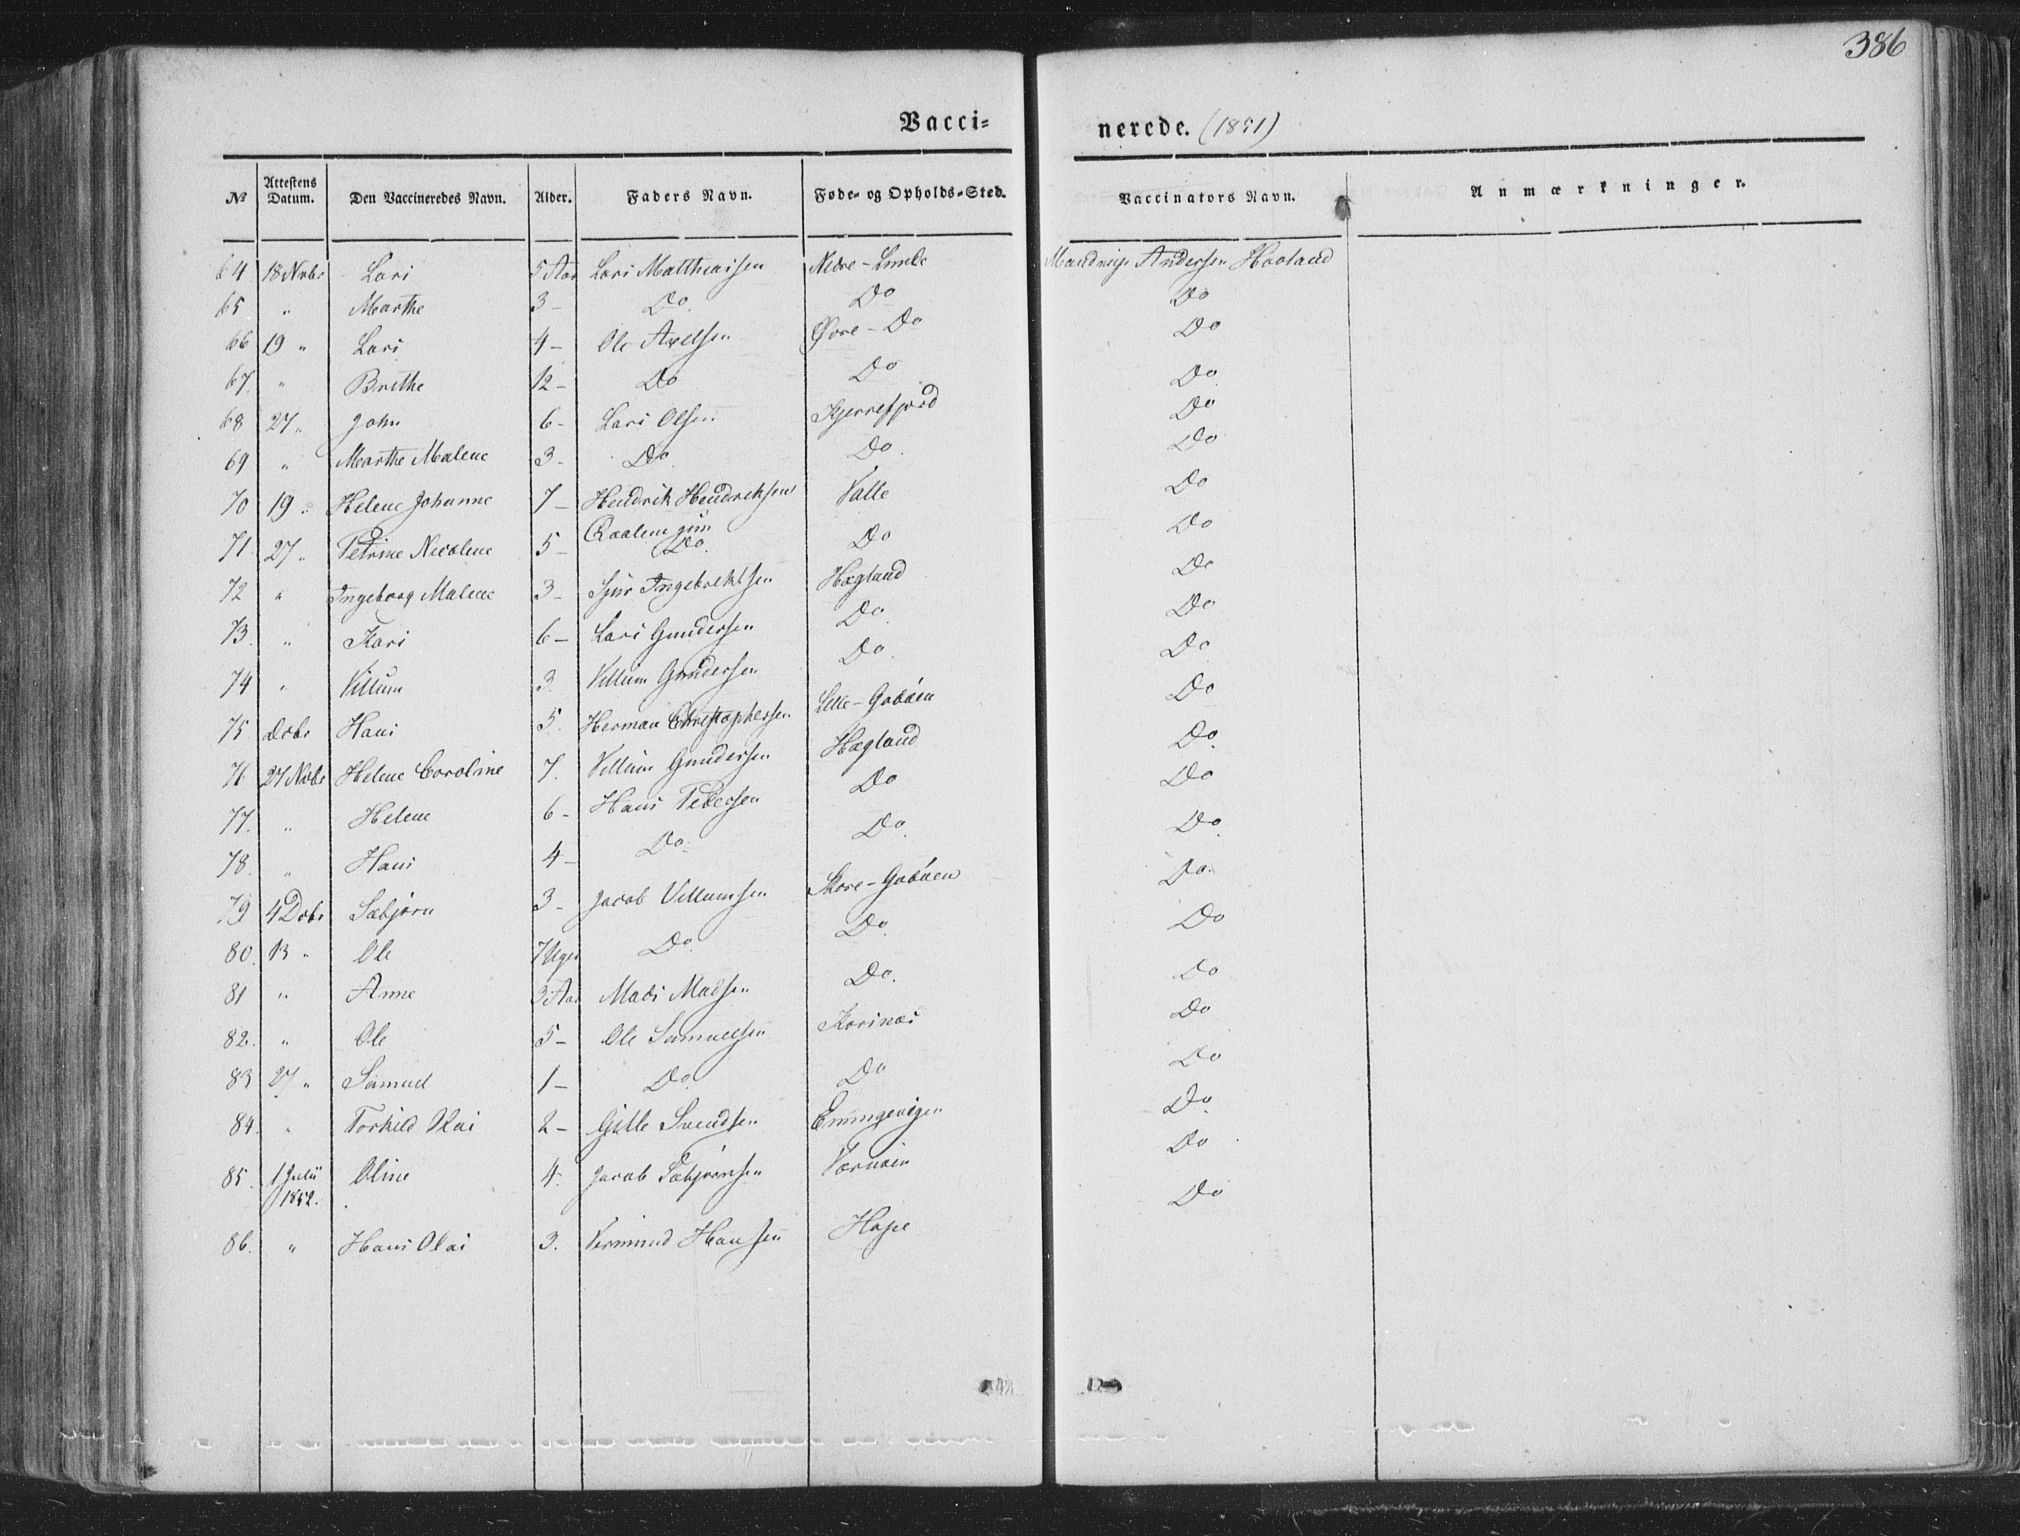 386
Vacci-
nerede. (1851)
№ Attestens Datum. Den Vaccineredes Navn. Alder. Faders Navn. Føde- og Opholds-Sted. Vaccinators Navn. Anmærkninger.
64 18 Nvbr Lars 5 Aar Lars Matthiasen Nedre-Limle Maudrup Andersen Haaland
65 " Marthe 3- Do. Do Do
66 19 " Lars 4- Ole Axelsen Øvre-Do Do
67. " Brithe 12- Do Do Do
68 27 " John 6- Lars Olsen Kjerrefjord Do
69 " Marthe Malene 3- Do Do. Do
70 19 " Helene Johanne 7- Hendrik Hendriksen Valle Do
71 27 " Petrine Nicoline 5- Do. Do Do
72 " Ingeborg Malene 3- Sjur Ingebrektsen Hægland Do
73. " Kari 6- Lars Gundersen Do. Do
74 " Villum 3. Villum Gundersen Do. Do
75 Dcbr Hans 5. Herman Christophersen Lille-Gabøen Do
76 27 Nvbr Helene Caroline 7. Villum Gundersen Hægland Do.
77. " Helene 6- Hans Pedersen Do Do
78. " Hans 4- Do. Do. Do.
79 4 Dcbr Sæbjørn 3- Jacob Villumsen Store-Gabøen Do.
80. 13 " Ole 7 Uger Do. Do. Do
81 " Anne 3 Aar Mads Madsen Do. Do
82. " Ole 5- Ole Samuelsen Korsnæs Do
83 27 " Samuel 1- Do. Do Do
84. " Torkild Kai 2- Gitle Svendsen Do.
85. 1 Julii Oline 4. Jacob Sæbjørnsen Værnøen Do
1852.
86. " Hans Olai 3. Vermund Hansen Hope Do